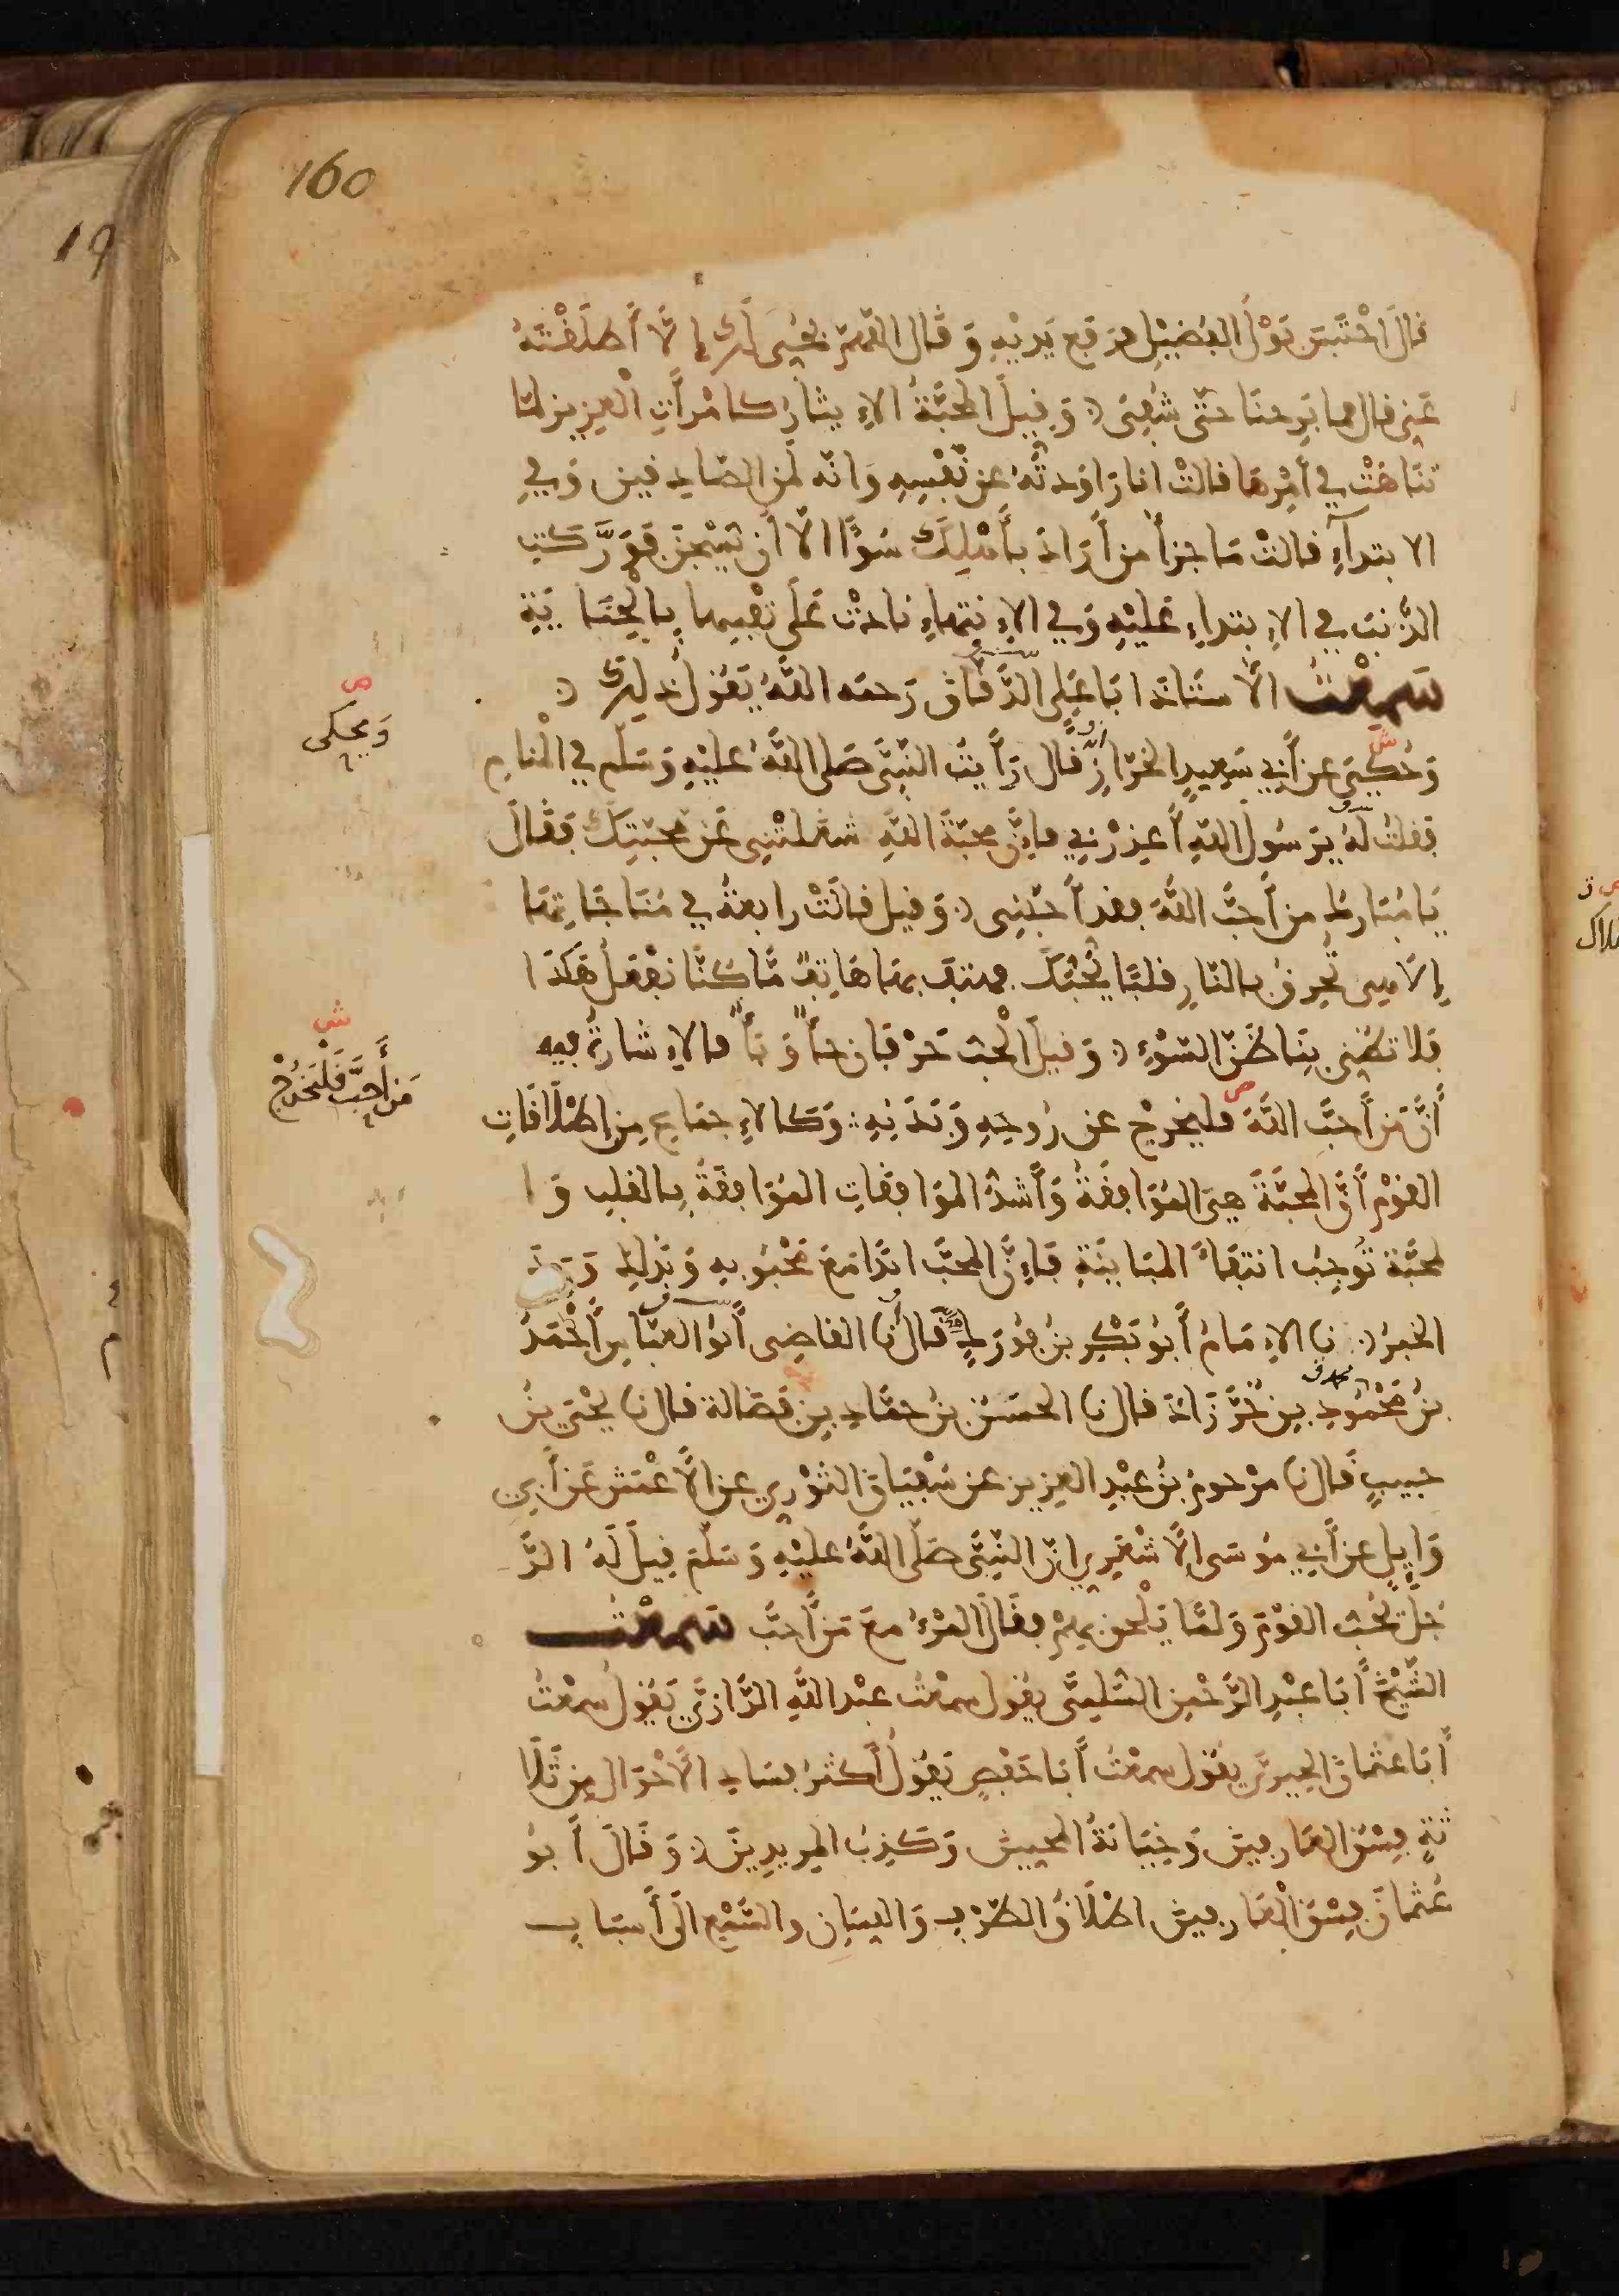 160
19
قَالَ احْتَبَسَ بَوْلُ الفُضَيْلِ فرَفَع يَدَيْهِ وَقَال اللَّهمّ بِحُبِّى لَكَ إِلَّا أَطْلَقْتَهُ
عَنِى قال فما بَرِحنَا حَتَّى شُفِىَ وَقِيلَ المحَبَّةُ الاِيثَارُ كامْرَأَتِ العزيز لمّا
تَنَاهَتْ فِي أَمْرِهَا قالتْ انا رَاوَدتُّهُ عن نَّفْسِهِ وَانّه لَمِن الصّادِقين وَفِي
الابتدآءِ قالتْ مَا جزآُ من أَرَادَ بأَهْلِكَ سُوءًا الّا أَن يُسْجَنَ فَوَرَّكَتِ
الذَّنبَ فِي الاِبتداءِ عَلَيْهِ وَفِي الاِنتهاءِ نادتْ عَلَى نَفْسِها بِالخِيَانَةِ
سَمِعْتُ الأُستَاذَ ابَا عَلِى الدَّقَّاق رَحمَه اللَّهُ يَقُولُ ذلِكَ
وَحُكِىَ عن أَبِي سَعِيدٍ الخرّازِ قَال رَأَيتُ النّبِىَّ صَلى اللَّهُ عَليْهِ وَسَلّم فِي المْنامِ
فَقلتُ لَهُ يَرَسُولَ اللَّهِ أَعذِرْنِي فاِنَّ محبّةَ اللَّهِ شغلتْنِى عَن محبّتِكَ فقَالَ
يَا مُبَارك من أَحبَّ اللَّهَ فقد أَحبّنِى وَقيل قالَتْ رابعةُ فِي مُنَاجَاتِهَا
إِلاهِى تُحرِقُ بالنّارِ قلبًا يُحبُّكَ فهتفَ بِهَا هَاتِفٌ مَّا كنَّا نَفْعَلُ هَكَذَا
فَلا تَظُنِّى بِنَا ظَنَّ السّوْءِ وَقِيلَ الْحُبّ حَرْفَانِ حَاءٌ وَبَاءٌ فالاِشَارةُ فِيه
أَنَّ مَن أَحبَّ اللَّهَ فليَخرجْ عن رُوحِهِ وَبَدَنِهِ وَكالاِجمَاعِ مِن إِطْلَاقَاتِ
القوْمِ أَنَّ المحبَّةَ هِيَ المُوَافِقَةُ وَأَشدُّ المُوَافَقَاتِ المُوَافِقَةُ بِالقلبِ وَا
لمحبَّة تُوجِبُ انتفَاءَ المبَايَنَةِ فَاِنَّ المحبَّ ابَدًا مَعَ مَحْبُوبِهِ وَبِذلِكَ وَرَدَ
الخبرُ نا الاِمَامُ أَبُو بَكْرِ بنُ فُورَكٍ قال نا القاضِى أَبُو العبَّاسِ أَحْمَدُ
بنُ مَحْمُودِ بنِ خُرَّزَاذَ قال نا الحسَنُ بنُ حمَّادِ بنِ فَضَالة قال نا يحْيَى بنُ
حبيبٍ قال نا مرْحومُ بنُ عَبْدِ العزيزِ عن سُفْيَانَ الثوْرِي عن الأَعْمَشِ عَن أَبِي
وَايِلٍ عن أَبِي مُوسَى الأَشْعَرِيِ انّ النّبِىَّ صَلَّى اللَّهُ عَليْهِ وَسَلّمَ قِيلَ لَهُ الرَّ
جُل يُحِبُّ القوْمَ وَلَمَّا يَلْحق بِهِمْ فقَالَ المَرْءُ معَ مَنْ أَحبَّ سَمِعْتُ
الشّيْخَ أَبَا عَبْدِ الرَّحْمنِ السُّلَمِىَّ يقول سمعْتُ عبْدَ اللَّهِ الرَّازِيَّ يَقول سمعْتُ
أَبَا عثمانَ الحِيرِيَّ يقول سمعْتُ أَبَا حَفصٍ يَقُولُ أَكثرُ فسَادِ الأَحْوَالِ مِن ثَلَا
ثَةٍ فِسْقِ العَارفينَ وَخِيَانَةُ المحبينَ وَكَذِبُ المريدِينَ وَقَالَ أَبُو
عُثمانَ فِسْقُ العَارفينَ اطْلَاقُ الطّرْفِ وَاللسَانِ والسَّمْعِ الَى أَسبَابِ
ص
وَيحكى
ش
شى
مَنْ أَحبَّ فَلْيَخْرُجْ
ص